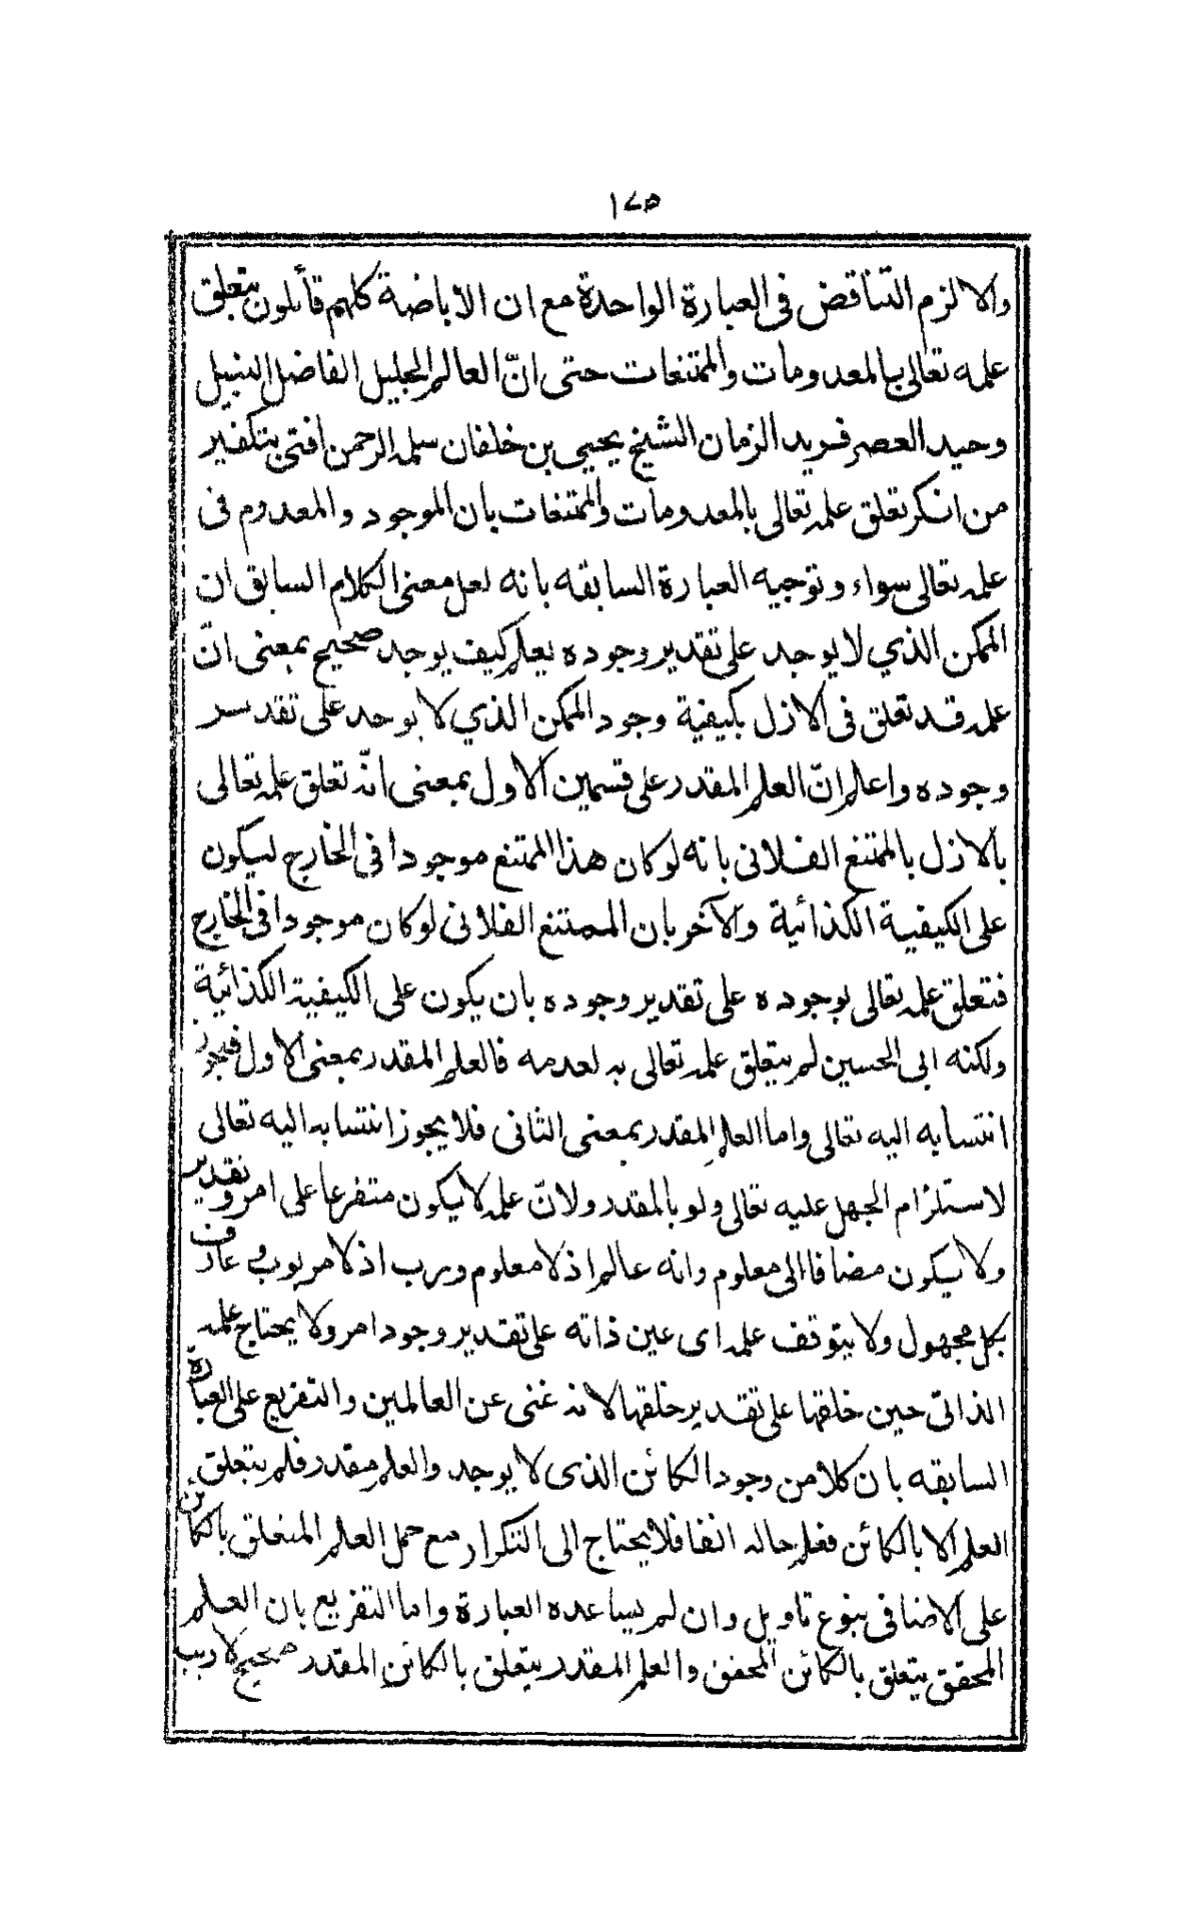 ١٤٥
والا لزم التناقض فى العبارة الواحدة مع ان الأباضة كلهم قائلون بتعلق
علمه تعالى بالمعدومات والممتنعات حتى انّ العالم الجليل الفاضل النبيل
وحيد العصر فريد الزمان الشيخ يحيى بن خلفان سلمه الرحمن افتى بتكفير
من انكر تعلق علمه تعالى بالمعدومات والممتنعات بأن الموجود والمعدوم فى
علمه تعالى سواء وتوجيه العبارة السابقه بانه لعل معنى الكلام السابق ان
الممكن الذي لا يوجد على تقدير وجوده يعلم كيف يوجد صحيح بمعنى انّ
علمه قد تعلق فى الازل بكيفية وجود الممكن الذي لا يوجد على تقدير
وجوده واعلم انّ العلم المقدر على قسمين الاول بمعنى انّه تعلق علمه تعالى
بالازل بالممتنع الفلانى بانه لو كان هذا الممتنع موجودا فى الخارج ليكون
على الكيفية الكذائية والآخر بان الممتنع الفلانى لو كان موجودا فى الخارج
فتعلق علمه تعالى بوجوده على تقدير وجوده بان يكون على الكيفية الكذائية
ولكنه ابى الحسين لم يتعلق علمه تعالى به لعدمه فالعلم المقدر بمعنى الاول فيجوز
انتسابه اليه تعالى واما العلم المقدر بمعنى الثانى فلا يجوز انتسابه اليه تعالى
لاستلزام الجهل عليه تعالى ولو بالمقدر ولانّ علمه لا يكون متفرعا على امر وتقدير
ولا يكون مضافا الى معلوم وانه عالم اذ لا معلوم ورب اذ لا مربوب وعارف
بكل مجهول ولا يتوقف علمه اى عين ذاته على تقدير وجود امر ولا يحتاج علمه
الذاتى حين خلقها على تقدير خلقها لانه غنى عن العالمين والتفريع على العبارة
السابقه بان كلا من وجود الكائن الذى لا يوجد والعلم مقدر فلم يتعلق
العلم الا بالكائن فعلم حاله انفا فلا يحتاج الى التكرار مع حمل العلم المتعلق بالكائن
على الاضافى بنوع تاويل وان لم يساعده العبارة واما التفريع بان العلم
المحقق يتعلق بالكائن المحقق والعلم المقدر يتعلق بالكائن المقدر صحيح لا ريب